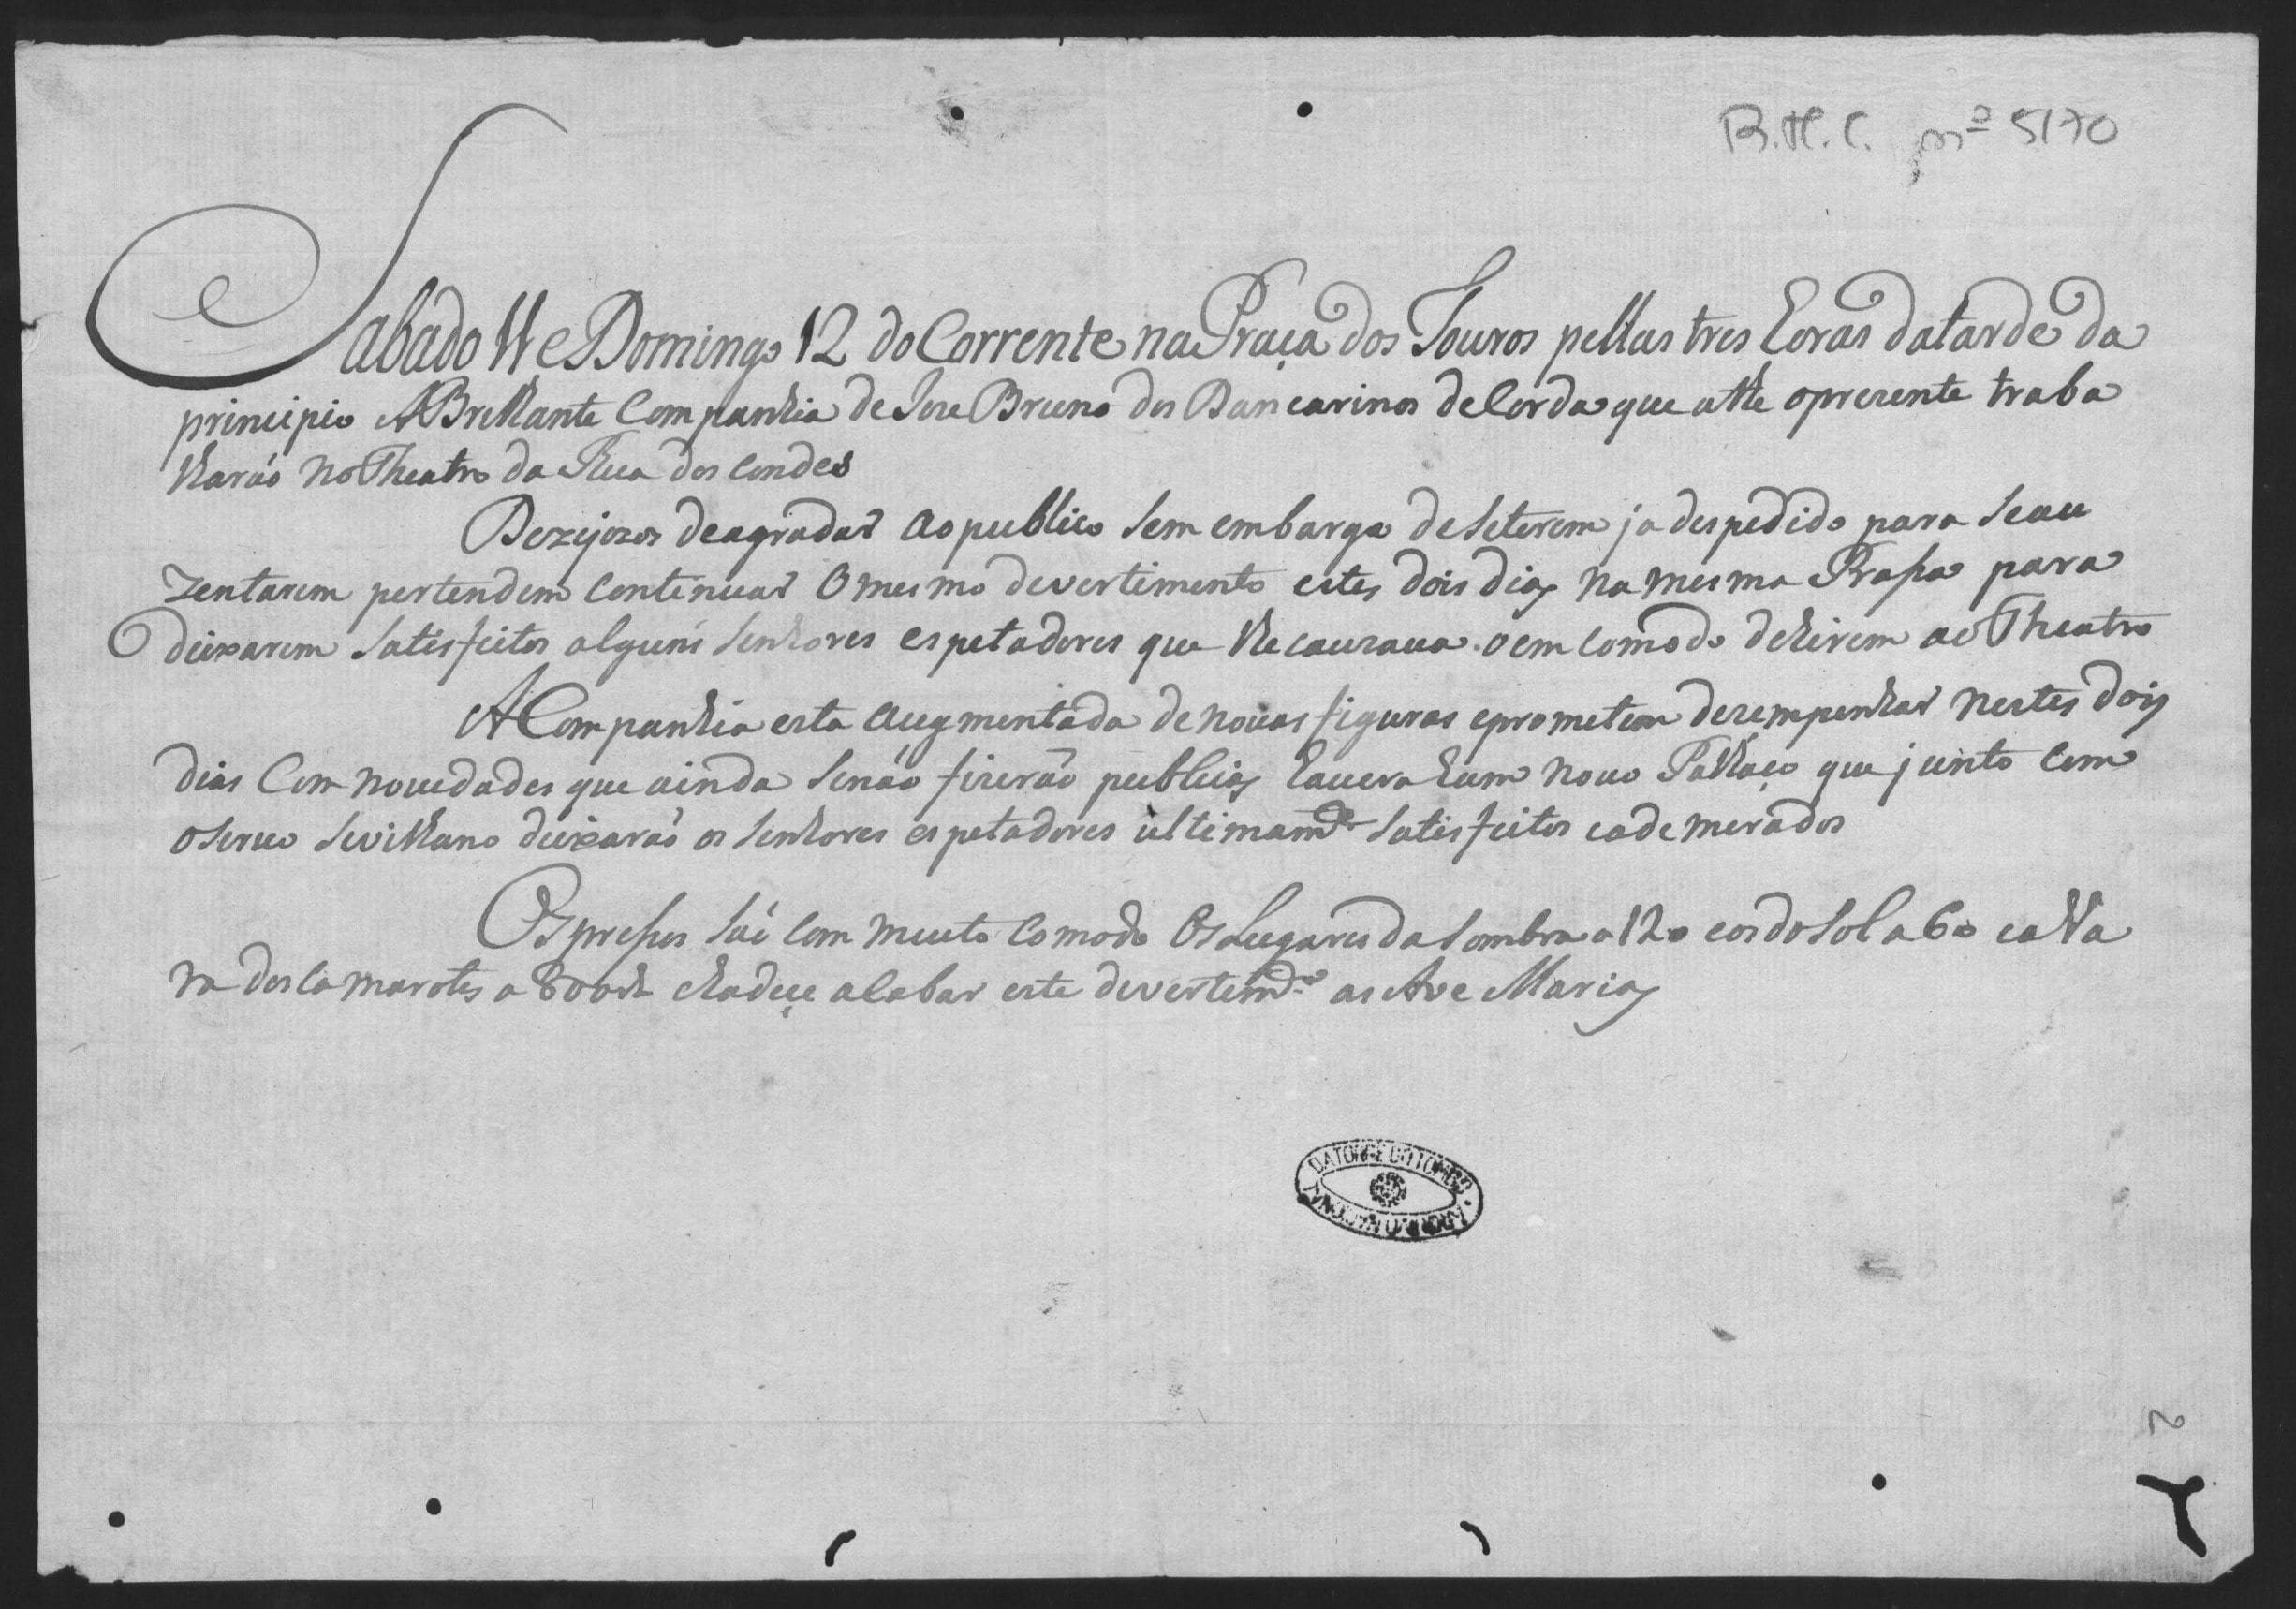 B.H.C. nº 5170
Sabado 11 e Domingo 12 do Corrente na Praça dos Touros pellas tres horas da tarde da
principio A Brilhante Companhia de Joze Bruno dos Dancarinos de Corda que athe o prezente traba
lharáo no Theatro da Rua dos Condes
Dezejozos de agradar ao publico sem embargo de se terem ja despedido para se au
zentarem pertendem continuar o mesmo devertimento estes dois dias na mesma Prassa para
deixarem satisfeitos alguns senhores espetadores que lhe cauzava o emcomodo de hirem ao Theatro
A Companhia esta augmentada de novas figuras e prometem dezempenhar nestes dois
dias com novedades que ainda se náo fizeráo publicas havera hum novo Palhaço que junto com
o servo sevilhano deixaráo os senhores espetadores ultimamde satisfeitos e ademerados
Os pressos sáo com muito comodo Os Lugares da sombra a 120 e os do sol a 60 e a Va
ra dos camarotes a 800rs e hade çe acabar este devertemdo as Ave Marias
DA TORRE DO TOMBO · ARQUIVO NACIONAL
2